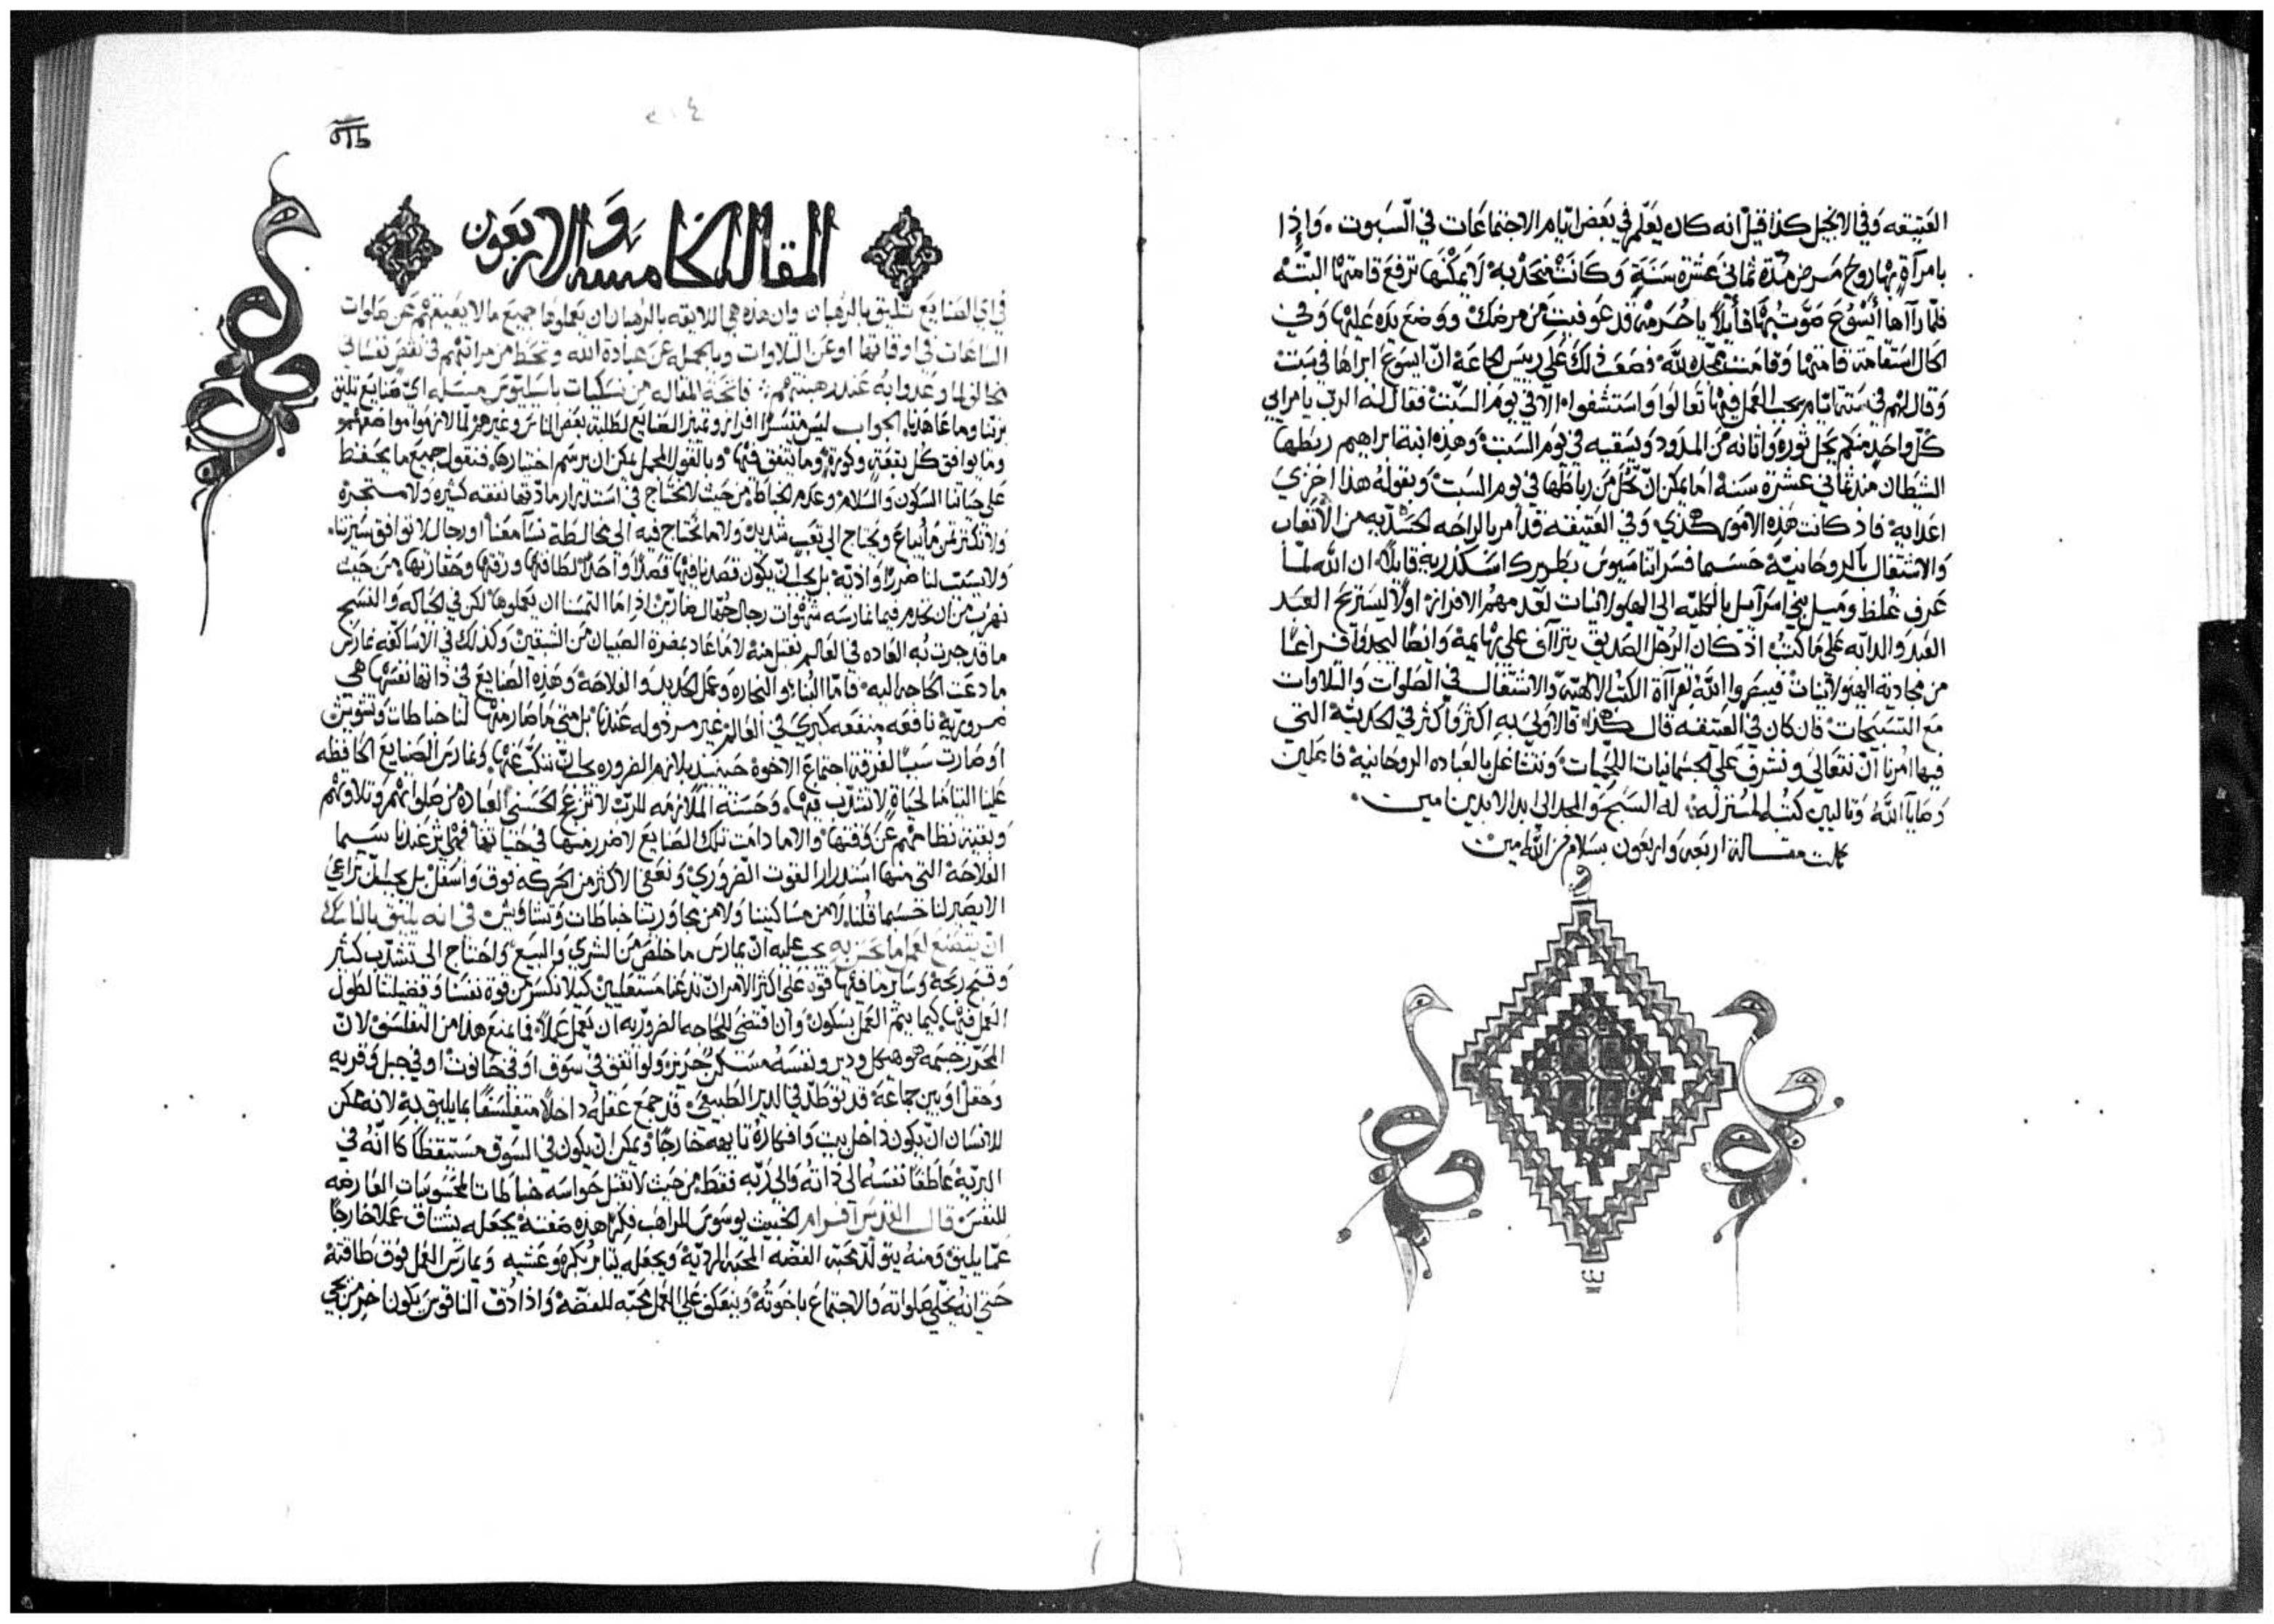 العتيقه وفي الانجيل كذا قيل انه كان يعلم في بعض ايام الاجتماعات في السبوت. واذا
بامرآة بها روح مرض مدة ثماني عشرة سنة وكانت منحدبه لا يمكنها ترفع قامتها البته
فلما رآاها ايسوع صوت بها قايلاً يا حرمه قد عوفيت من مرضك ووضع يده عليها وفي
الحال استقامة قامتها وقامت تمجد لله فصعب ذلك على ريس الجماعة ان ايسوع ابراها في سبت
وقال لهم في ستة ايام يجب العمل فيها تعالوا واستشفوا لا في يوم السبت فقال له الرب يا مرايي
كل واحد منكم يحل ثوره واتانه من المدود ويسقيه في يوم السبت وهذه ابنة ابراهيم ربطها
الشطان منذ ثماني عشرة سنة اما يمكن ان تحل من رباطها في يوم السبت وبقوله هذا اخزي
اعدايه فاذ كانت هذه الامور هكذي وفي العتيقه قد امر بالراحه الجسديه من الاتعاب
والاشتغال بالروحانية حسبما فسر اثناسيوس بطريرك اسكندرية قايلاً ان الله لما
عرف غلظ وميل بني اسرآيل بالكليه الى الهيولانيات لعدم مهم الافراز اولاً ليستريح العبد
العبد والدابه على ما كتب اذ كان الرجل الصديق يتراآف على بهايمه وايضا ليجدوا فراغا
من مجاذبة الهيولانيات فيسبحوا الله بقرآآة الكتب الالهية والاشتغال في الصلوات والتلاوات
مع التسبيحات فان كان في العتيقه قال هكذا فالاولى به اكثر واكثر في الحديثه التي
فيها امرنا ان نتعالى ونشرف على الجسمانيات اللحميات ونتشاغل بالعباده الروحانيه فاعلين
وصايا الله وتاليين كتبه المنزله. له السبح والمجد الى ابد الابدين امين.
كملت مقالة اربعه واربعون بسلام من الله امين
٢٠٤
المقاله الخامسه والاربعون
في اي الصنايع تليق بالرهبان وان هذه هي اللايقه بالرهبان ان يعملوها جميع ما لا يعيقهم عن صلوات
الساعات في اوقاتها او عن التلاوات وبالجمله عن عبادة الله وتحط من مراتبهم في نقص نفساني
مخالف لما وعدوا به عند رهبنتهم: فاتحة المقاله من نسكيات باسيليوس مسله اي صنايع تليق
بزينا وما عاهدنا. الجواب ليس متيسرًا افراز وتمييز الصنايع لطلبة بعض الناس وغيرهم
وما يوافق كل بقعة وكورة وما يتفق فيها وبالقول المجمل يمكن ان نرسم اختيارها فنقول جميع ما يحفظ
على حياتنا السكون والسلام وعدم الخباط من حيث لا نحتاج في استدرار مادتها نفقه كثيره
ولا تكثر ثمن ما يباع ويحتاج الى تعب شديد ولا ما نحتاج فيه الى مخالطة نسآ معنا او رجال لا توافق سيرتنا.
ولا يسبب لنا ضررًا واذيه بل يجب ان يكون قصدنا فيها قصدًا واحدًا لطافتها ورقتها وحقارتها من حيث
نهرب من ان نخدم فيما نمارسه شهوات رجال جهال عاديين اذا ما التمسنا ان يعملوها لكن في الحياكه والنسيج
ما قد جرت به العاده في العالم نقتبل منه لا ما عاد بمضرة الصبيان من الشبقين وكذلك في الاساكفه نمارس
ما دعت الحاجه اليه. فاما البناء والنجاره وعمل الحديد والفلاحة وهذه الصنايع في ذاتها نفسها هي
ضروريه نافعه منفعه كبرى في العالم غير مرذوله عندنا بل متى ما صار منها لنا خباطات وتشويش
او صارت سببًا لفرقة اجتماع الاخوة حينيذ بلازم الضروره يجب ان نتنكب عنها. ونمارس الصنايع الحافظه
علينا التيامنا لحياة لا تشتت فيها. وحسنة الملازمه للرب لا تزعزع العباده من صلواتهم وتلاوتهم
وبقية نظامهم عن وقتها والا ما دامت تلك الصنايع لا ضرر منها في حياتنا فهي تؤثر عندنا سيما
الفلاحة التي منها استدرار القوت الضروري وتعفي الاكثر من الحركه فوق واسفل بل يجب ان تراعي
الا يصير لنا حسبما قلنا لا من مساكنينا ولا من مجاورينا خباطات وتشاويش في انه يليق بالناسك
ان يتصنع لعمل ما يحسن به يجب عليه ان يمارس ما خلص من الشري والبيع واحتاج الى تشتت كثير
وقبح ربحه وساير ما فيها قوة على اكثر الامر ان تدعنا مستعلين كيلا تكسر من قوة نفسنا وفضيلتنا لطول
العمل فيها. كيما يتم العمل بسكون وان اقتضى للحاجه الضروريه ان يعمل عملاً فما يمنع هذا من التفلسف لان
المحذر جسمه هو هيكل ودير ونفسه مسكن حريز ولو اتفق في سوق او في حانوت او في جبل وقريه
وحقل او بين جماعة قد توطد في الدير الطبيعي قد جمع عقله داخلاً متفلسفًا بما يليق به لانه ممكن
للانسان ان يكون داخل بيت وافكاره تايهه خارجًا ويمكن ان يكون في السوق مستيقظًا كانه في
البريه عاطفًا نفسه الى ذاته والى ربه فقط من حيث لا تقبل حواسه خباطات المحسوسات العارضه
للنفس قال القديس آفرام الخبيث يوسوس للراهب فكرًا هذه صفته يجعله يشتاق عملاً خارجًا
عما يليق ومنه يتولد محبة الفضه المحبة الردية ويجعله يثابر بكره وعشيه ويمارس العمل فوق طاقته
حتى انه يخلي صلواته والاجتماع باخوته وينعكف على العمل محبه للفضة واذا دُق الناقوس يكون اخر من يجي